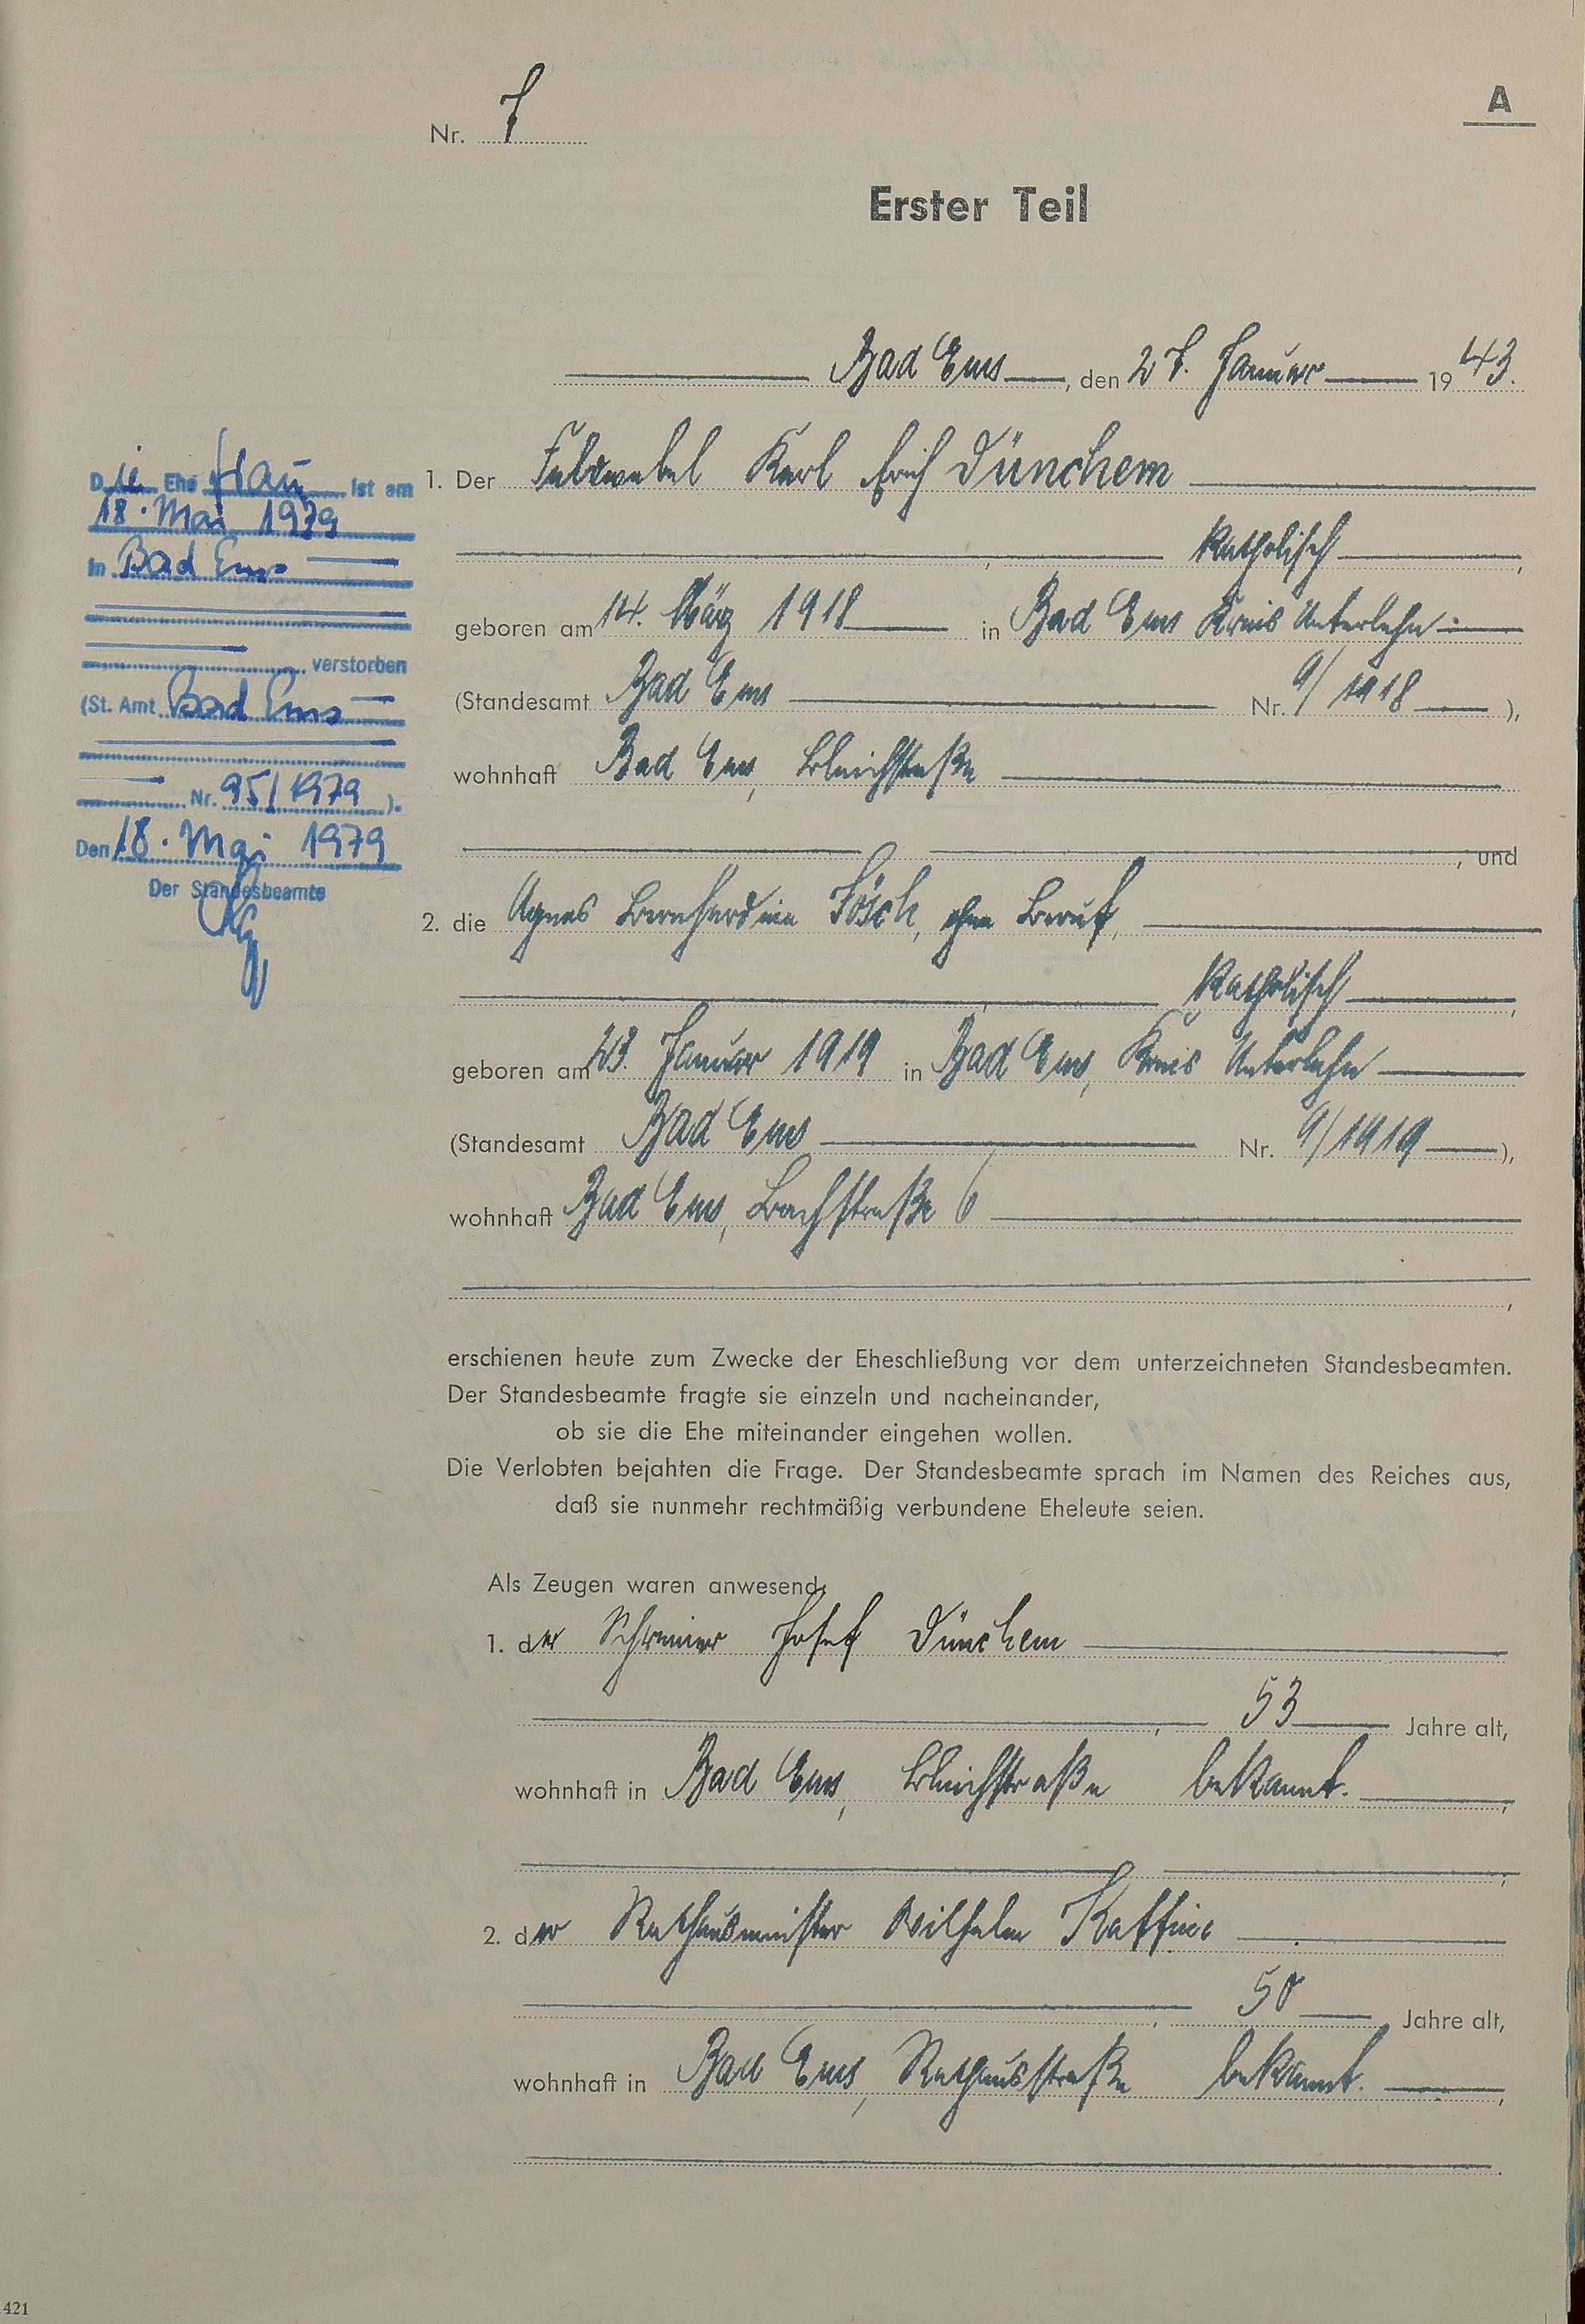 A
Nr. 7
Erster Teil
Bad Ems, den 27. Januar 1943.
1. Der Feldwebel Karl Erich Dünchem
katholisch,
geboren am 14. März 1918 in Bad Ems Kreis Unterlahn
(Standesamt Bad Ems Nr. 9/1918),
wohnhaft Bad Ems, Bleichstraße
, und
2. die Agnes Bernhardine Lösch, ohne Beruf,
katholisch,
geboren am 23. Januar 1919 in Bad Ems, Kreis Unterlahn
(Standesamt Bad Ems Nr. 9/1919),
wohnhaft Bad Ems, Bachstraße 6
,
erschienen heute zum Zwecke der Eheschließung vor dem unterzeichneten Standesbeamten.
Der Standesbeamte fragte sie einzeln und nacheinander,
ob sie die Ehe miteinander eingehen wollen.
Die Verlobten bejahten die Frage. Der Standesbeamte sprach im Namen des Reiches aus,
daß sie nunmehr rechtmäßig verbundene Eheleute seien.
Als Zeugen waren anwesend:
1. der Schreiner Josef Dünchem
, 53 Jahre alt,
wohnhaft in Bad Ems, Bleichstraße bekannt.
;
2. der Rathausmeister Wilhelm
, 50 Jahre alt,
wohnhaft in Bad Ems, Rathausstraße bekannt.
Die Ehefrau ist am
18. Mai 1979
in Bad Ems
verstorben
(St. Amt Bad Ems
Nr. 95/1979).
Den 18. Mai 1979
Der Standesbeamte
421